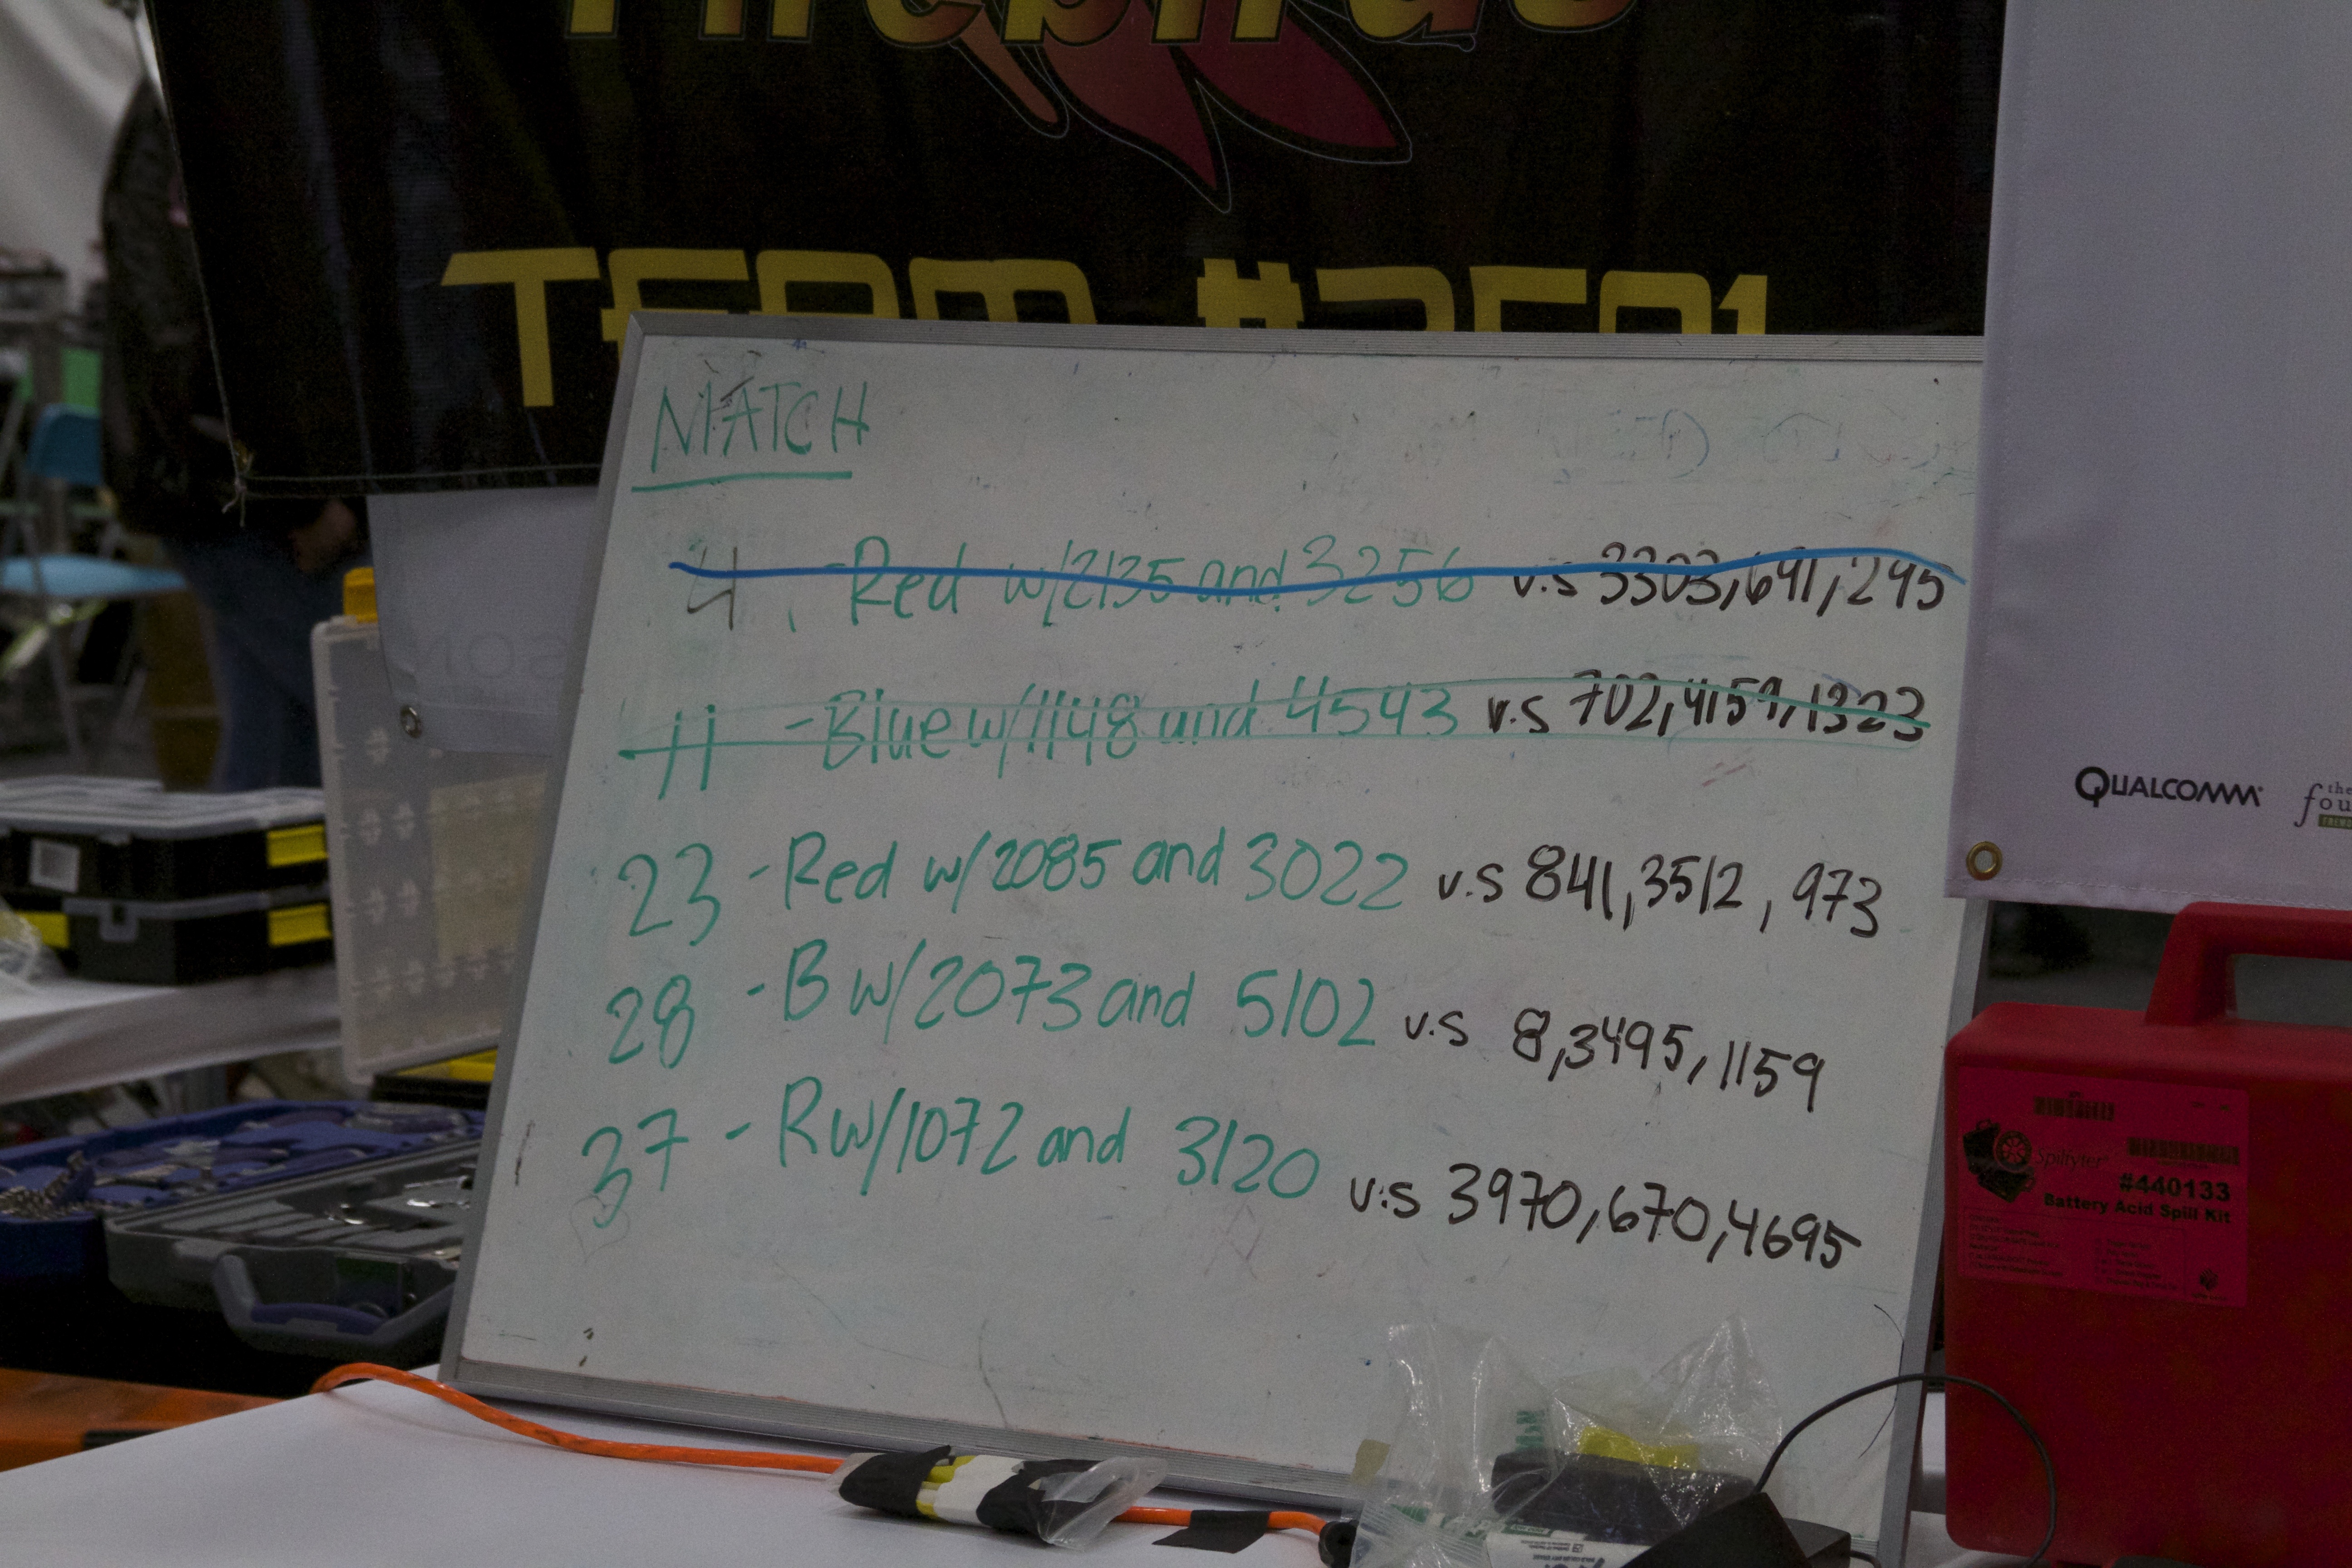 Firebirds
TEAM #2501
MATCH
4 - Red w/2135 and 3256 v.s 3303,691,295
11 - Blue w/1148 and 4543 v.s 702,4159,1323
23 - Red w/2085 and 3022 v.s 841,3512, 973
28 - B w/2073 and 5102 v.s 8,3495,1159
37 - R w/1072 and 3120 v.s 3970,670,4695
QUALCOMM
the
Spilfyter
#440133
Battery Acid Spill Kit